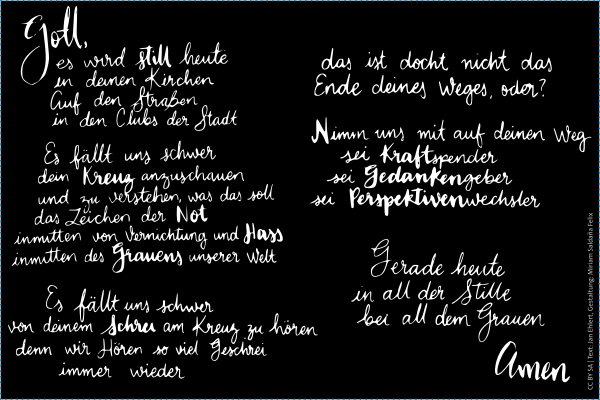 Gott,
es wird still heute
in deinen Kirchen
Auf den Straßen
in den Clubs der Stadt
Es fällt uns schwer
dein Kreuz anzuschauen
und zu verstehen, was das soll
das Zeichen der Not
inmitten von Vernichtung und Hass
inmitten des Grauens unserer Welt
Es fällt uns schwer
von deinem Schrei am Kreuz zu hören
denn wir Hören so viel Geschrei
immer wieder
das ist docht nicht das
Ende deines Weges, oder?
Nimm uns mit auf deinen Weg
sei Kraftspender
sei Gedankengeber
sei Perspektivenwechsler
Gerade heute
in all der Stille
bei all dem Grauen
Amen
CC BY SA | Text: Jan Ehlert, Gestaltung: Miriam Saldaña Felix